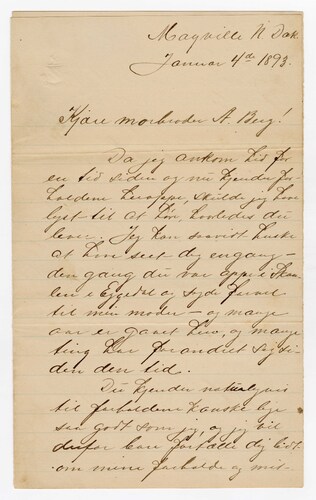 Mayville N Dak
Januar 4de 1893.
Kjære morbroder A. Berg!
Da jeg ankom hid for
en tid siden og nu kjender for-
holdene heroppe, skulde jeg have
lyst til at höre, hvorledes du
lever. Jeg kan saavidt huske
at have seet dig engang –
den gang du var oppe i
i Eggedal og sagde farvel
til min moder – og mange
aar er gaaet hen, og mange
ting har forandret sig si-
den den tid.
Du kjender naturligvis
til forholdene kanske lige
saa godt som jeg, og jeg vil
derfor bare fortælle dig lidt
om mine forholde og mit